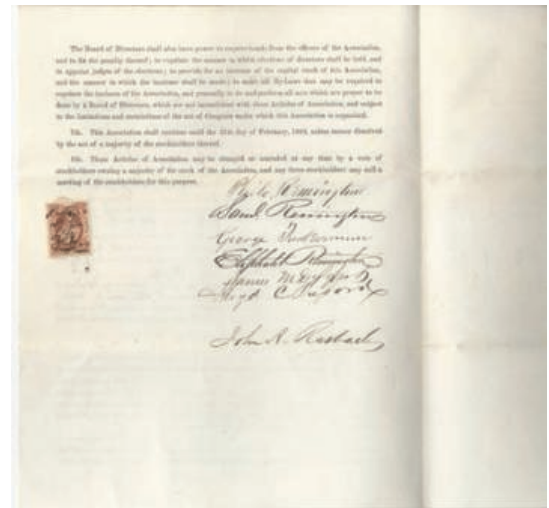 The Board of Directors shall also have power to require bonds from the officers of the Association,
and to fix the penalty thereof; to regulate the manner in which elections of directors shall be held, and
to appoint judges of the elections; to provide for an increase of the capital stock of this Association,
and the manner in which the increase shall be made; to make all By-Laws that may be required to
regulate the business of the Association, and generally to do and perform all acts which are proper to be
done by a Board of Directors, which are not inconsistent with these Articles of Association, and subject
to the limitations and restrictions of the act of Congress under which this Association is organized.
This Association shall continue until the day of February, unless sooner dissolved
by the act of a majority of the stockholders thereof.
These Articles of Association may be changed or amended at any time by a vote of
stockholders owning a majority of the stock of the Association, and any three stockholders may call a
meeting of the stockholders for this purpose.
Philo Remington
Saml Remington
George
Eliphalet Remington
James
Floyd C
John A. Rasbach